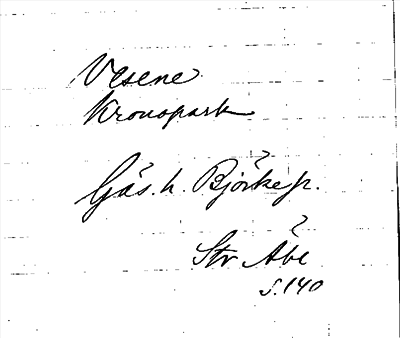 Vesene
Kronopark
Gäs. h. Björke sr.
Str Åbe
S. 140